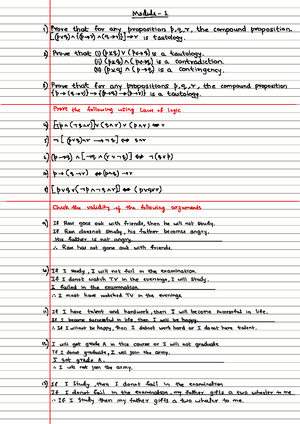 Module - 1
1) Prove that for any proposition p,q,r, the compound proposition.
[(p∨q)∧(p→r)∧(q→r)]→r is tautology.
2) Prove that (i) (p⊻q)∨(p↔q) is a tautology.
(ii) (p⊻q)∧(p↔q) is a contradiction
(iii) (p⊻q)∧(p→q) is a contingency.
3) Prove that for any propositions p,q,r, the compound proposition
{p→(q→r)}→{(p→q)→(p→r)} is a tautology.
Prove the following using Laws of logic
4) [¬p∧(¬q∧r)]∨(q∧r)∨(p∧r)⇔r
5)
6) (p→q)∧[¬q∧(r∨¬q)]⇔¬(q∨p)
7) p→(q→r)⇔(p∧q)→r
8) [p∨q∨(¬p∧¬q∧r)]⇔(p∨q∨r)
Check the validity of the following arguments
9) If Ram goes out with friends, then he will not study.
If Ram doesnot study, his father becomes angry.
His father is not angry
∴ Ram has not gone out with friends.
10) If I study, I will not fail in the examination
If I donot watch TV in the evenings, I will study.
I failed in the examination
∴ I must have watched TV in the evenings
11) If I have talent and hardwork, then I will become successful in life.
If I become successful in life then I will be happy.
∴ If I will not be happy, then I did not work hard or I do not have talent.
12) I will get grade A in this course or I will not graduate
If I donot graduate, I will join the army.
I got grade A.
∴ I will not join the army.
13) If I study then I donot fail in the examination
If I donot fail in the examination, my father gifts a two wheeler to me.
∴ If I study then my father gifts a two wheeler to me.